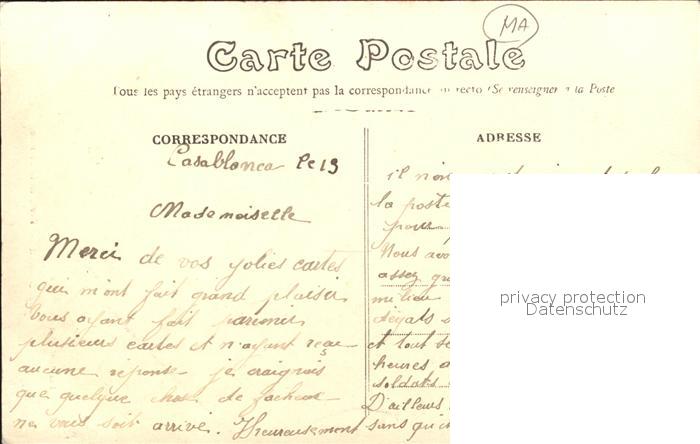 MA
Carte Postale
Tous les pays étrangers n'acceptent pas la correspondance au recto (Se renseigner à la Poste
CORRESPONDANCE
ADRESSE
Casablanca le 19
Mademoiselle
Merci de vos jolies cartes
qui m'ont fait grand plaisir
Vous ayant fait parvenir
plusieurs cartes et n'ayant reçu
aucune réponse je craignais
que quelque chose de facheux
ne vous soit arrivé. Heureusement
il
la poste
pour
Nous
assez
milieu
dégats
et tout
heures
soldats
D'ailleurs
sans
privacy protection
Datenschutz